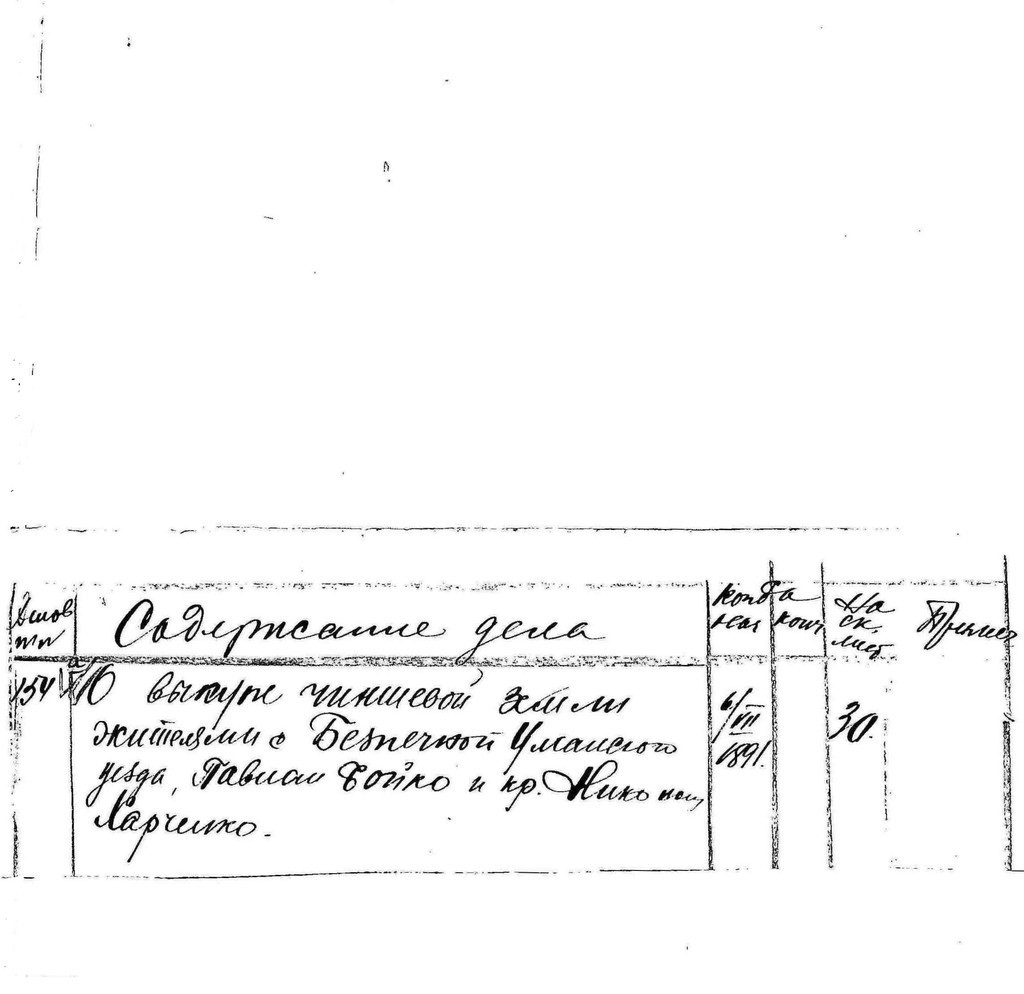 Содержание дела
когда
нач конч
На
ск.
лист.
Примеч
154 О выкупе чиншевой земли
жителями с Безпечной Уманского
уезда, Павлом Бойко и кр. Никоном
Харченко.
6/VII
1891.
30.